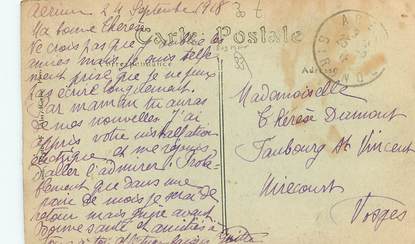 24 Septembre 1918
Carte Postale
Ma bonne Thérèse
Ne crois pas que je t'oublie les
autres mais je suis telle
ment prise que je ne peux
pas écrire longuement.
Par maman tu auras
de nos nouvelles. J'ai
appris votre installation
électrique et me réjouis
d'aller l'admirer. Proba
blement que dans une
de mois je serai de
retour mais guère avant.
Bonne santé et amitiés à
Adresse
Mademoiselle
Thérèse Dumont
Faubourg St Vincent
Mirecourt
Vosges